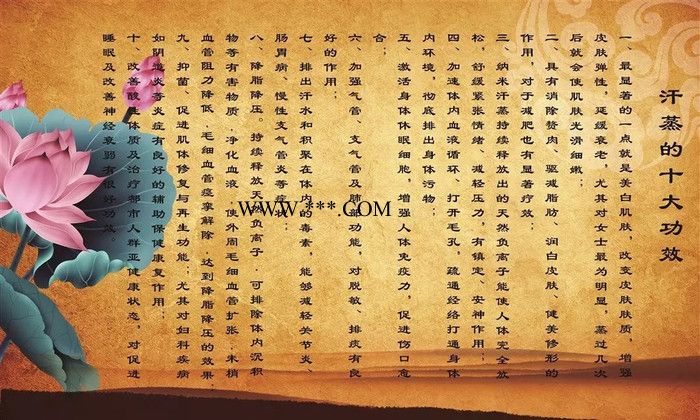 汗蒸的十大功效
一、最显著的一点就是美白肌肤，改变皮肤肤质，增强
皮肤弹性，延缓衰老，尤其对女士最为明显，蒸过几次
后就会使肌肤光滑细嫩；
二、具有消除赘肉、驱减脂肪、润白皮肤、健美修形的
作用，对于减肥也有显著疗效；
三、纳米汗蒸持续释放出的天然负离子能使人体完全放
松，舒缓紧张情绪、减轻压力，有镇定、安神作用；
四、加速体内血液循环、打开毛孔，疏通经络打通身体
内环境，彻底排出身体污物；
五、激活身体休眠细胞，增强人体免疫力，促进伤口愈
合；
六、加强气管、支气管及肺部功能，对脱敏、排痰有良
好的作用；
七、排出汗水和积聚在体内的毒素，能够减轻关节炎、
肠胃病、慢性支气管炎等症
八、降脂降压。持续释放天然负离子，可排除体内沉积
物等有害物质，净化血液，使外周毛细血管扩张，末梢
血管阻力降低、毛细血管痉挛解除，达到降脂降压的效果；
九、抑菌、促进肌体修复与再生功能；尤其对妇科疾病
如阴道炎等炎症有良好的辅助保健康复作用；
十、改善酸性体质及治疗都市人群亚健康状态，对促进
睡眠及改善神经衰弱有很好功效。
WWW.***.COM